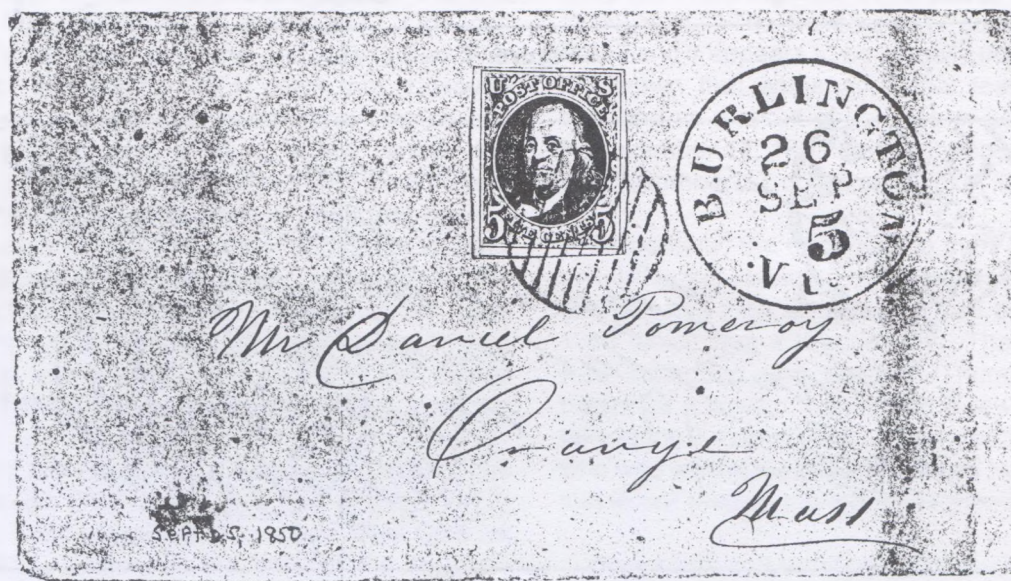 U S
POST OFFICE
5 FIVE CENTS 5
BURLINGTON
26
SEP
5
VT.
Mr Daniel Pomeroy
Orange
Mass
1850